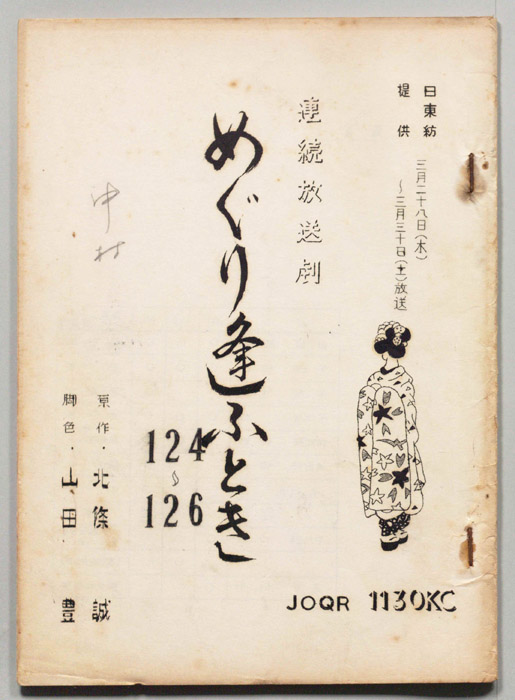 日東紡
提供
三月二十八日(木)
～三月三十日(土)放送
連続放送劇
めぐり逢ふとき
124
～
126
中村
原作・北條 誠
脚色・山田 豊
JOQR 1130KC